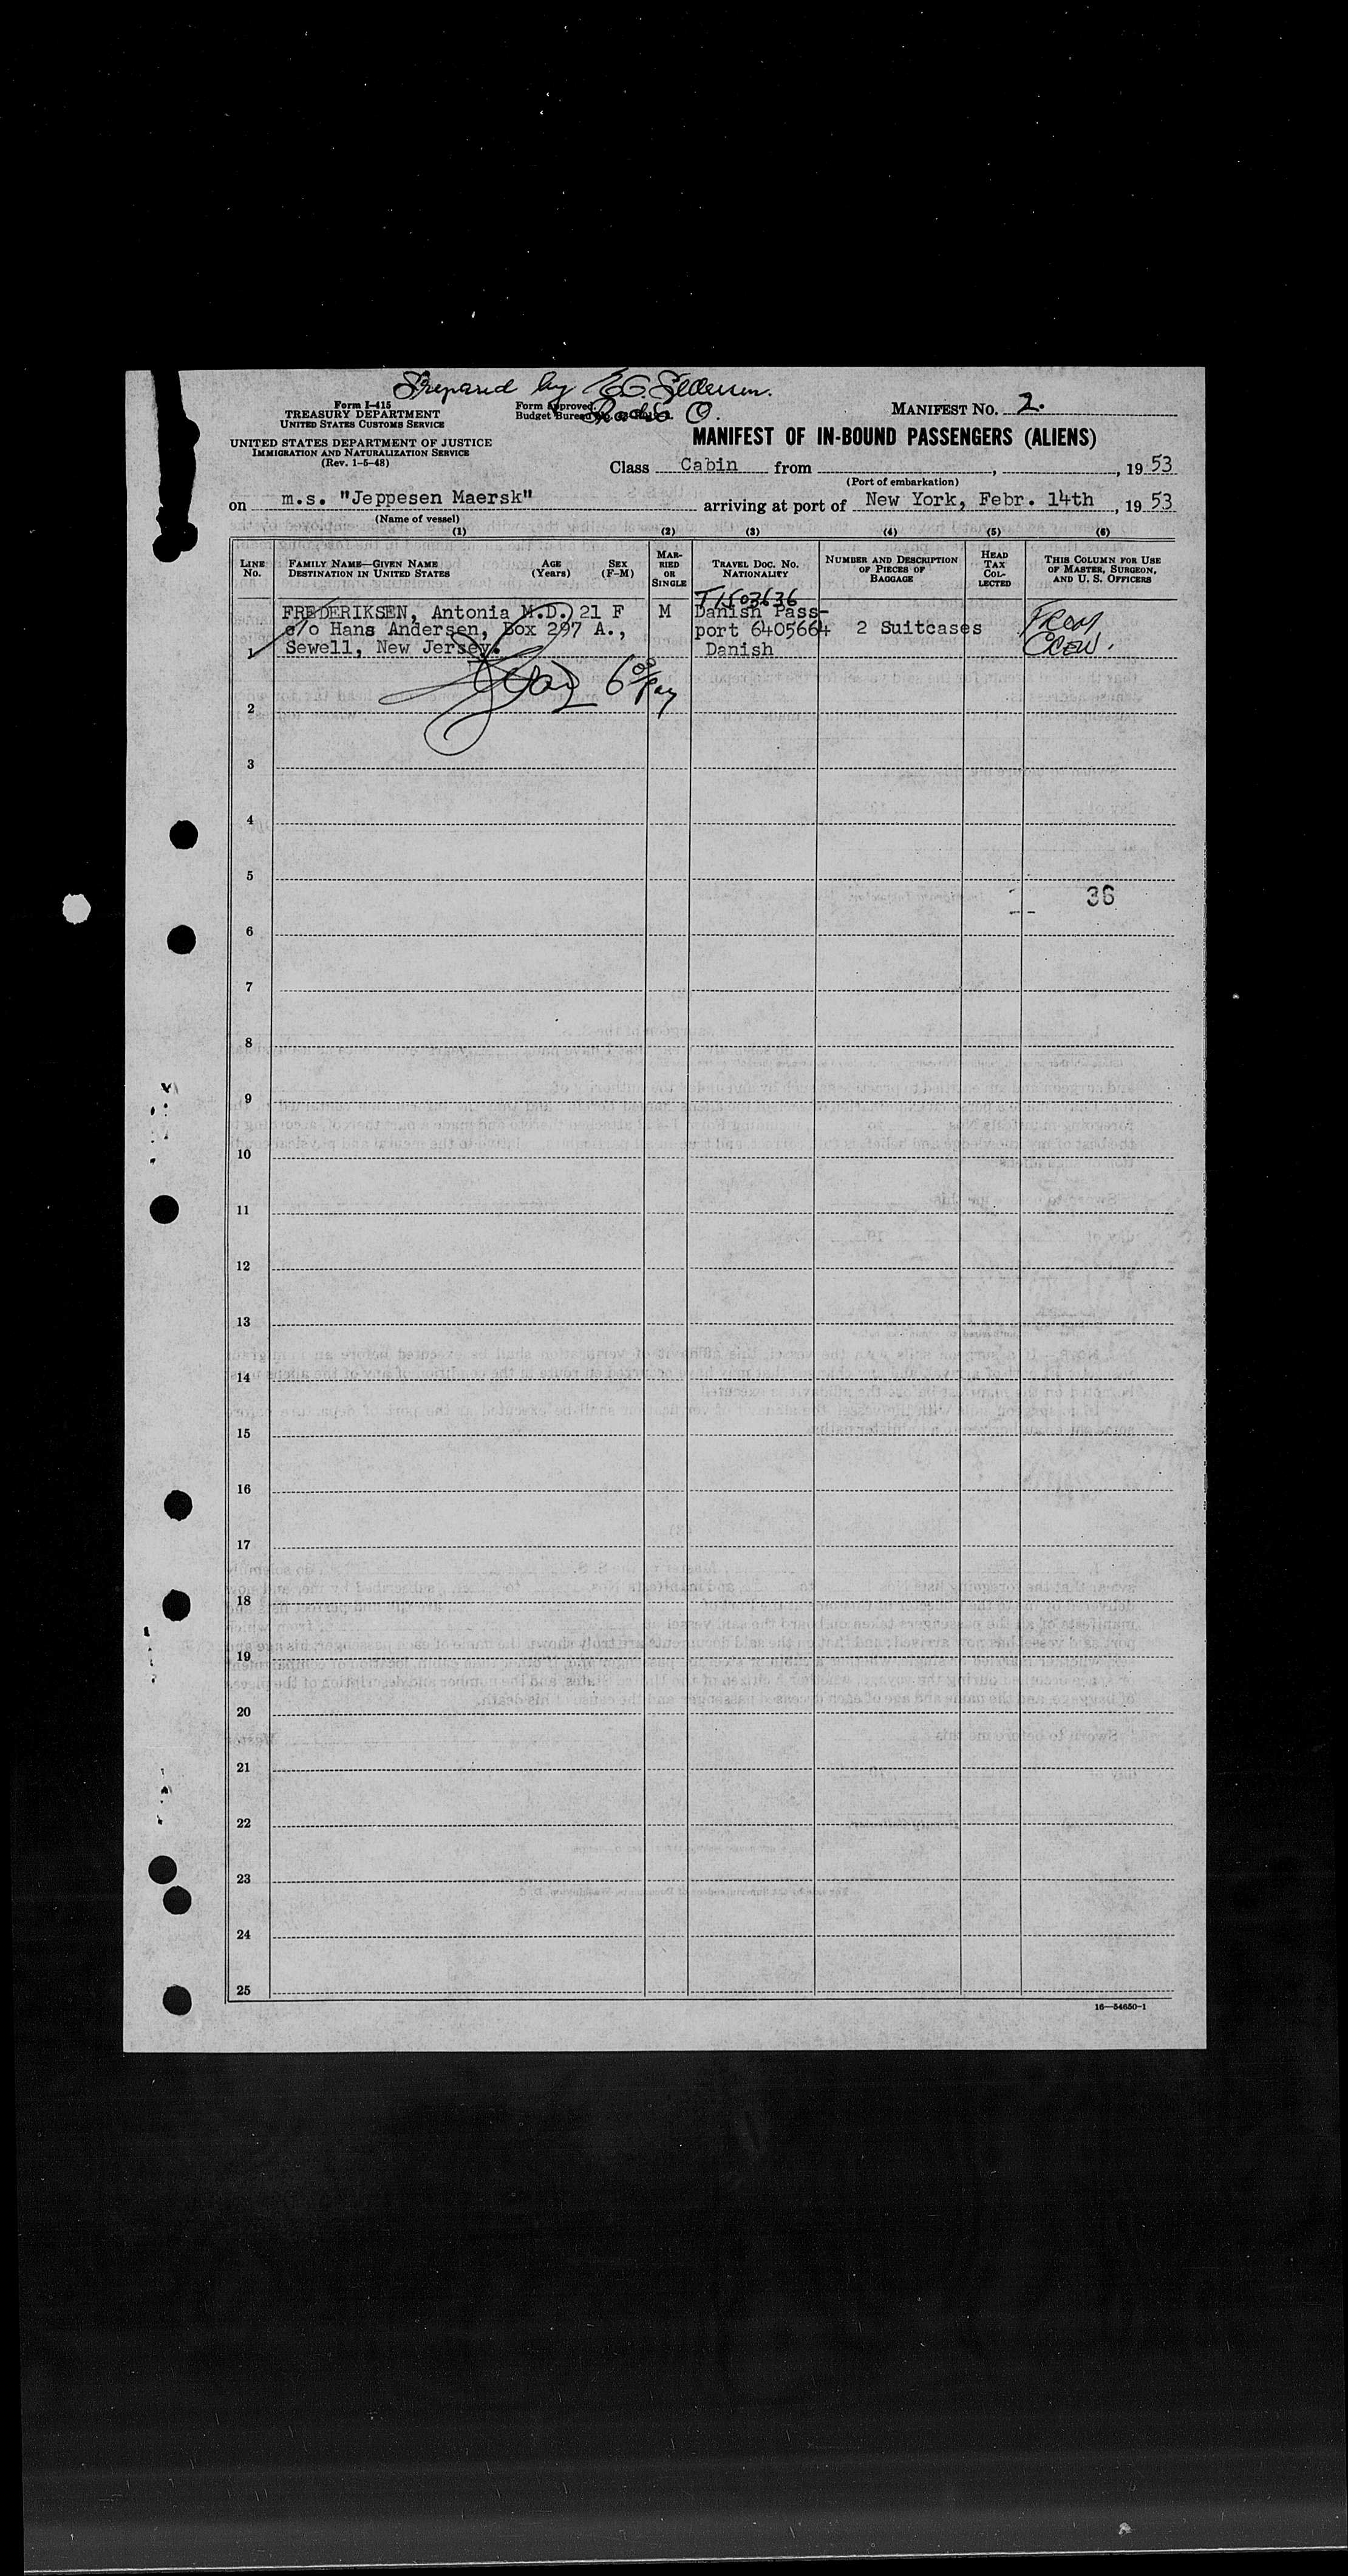 Prepared by
Form I-415
TREASURY DEPARTMENT
UNITED STATES CUSTOMS SERVICE
UNITED STATES DEPARTMENT OF JUSTICE
IMMIGRATION AND NATURALIZATION SERVICE
(Rev. 1-5-48)
Form Approved
Budget Bureau
MANIFEST NO. 2.
MANIFEST OF IN-BOUND PASSENGERS (ALIENS)
Class Cabin from , , 19 53
(Port of embarkation)
on m.s. "Jeppesen Maersk" arriving at port of New York, Febr. 14th , 19 53
(Name of vessel)
(1) (2) (3) (4) (5) (6)
LINE NO.
FAMILY NAME—GIVEN NAME
DESTINATION IN UNITED STATES
AGE (Years)
SEX (F-M)
MARRIED OR SINGLE
TRAVEL DOC. NO.
NATIONALITY
NUMBER AND DESCRIPTION OF PIECES OF BAGGAGE
HEAD TAX COLLECTED
THIS COLUMN FOR USE OF MASTER, SURGEON, AND U. S. OFFICERS
T1503636
FREDERIKSEN, Antonia M.D. 21 F M Danish Pass-
c/o Hans Andersen, Box 297 A., port 6405664 2 Suitcases FROM
1 Sewell, New Jersey. Danish CREW.
2
3
4
5
36
6
7
8
9
10
11
12
13
14
15
16
17
18
19
20
21
22
23
24
25
16—54650-1